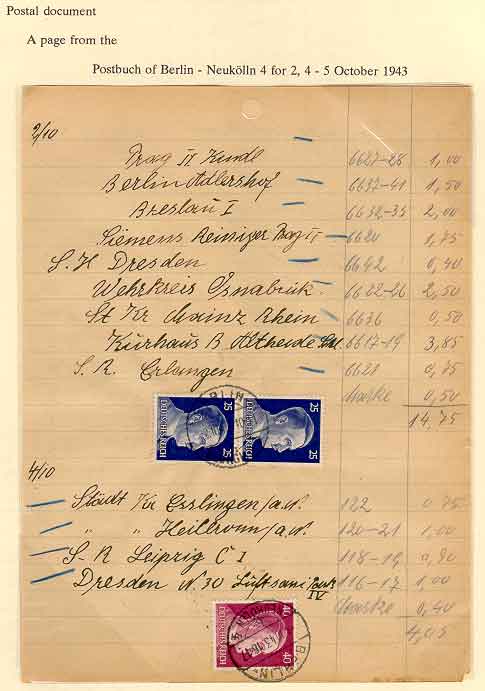 Postal document
A page from the
Postbuch of Berlin - Neukölln 4 for 2, 4 - 5 October 1943
2/10
Prag II Kundl 6627-28 1,00
Berlin Adlershof 6637-41 1,50
Breslau I 6632-35 2,00
Siemens Reiniger Prag II 6620 1,75
S. H Dresden 6642 0,40
Wehrkreis Osnabrük. 6622-26 2,50
St Kr Mainz Rhein 6636 0,50
Kurhaus B Altheide 6617-19 3,85
S. R. Erlangen 6621 0,75
Marke 0,50
14,75
BERLIN
25 25
DEUTSCHES REICH DEUTSCHES REICH
25 25
4/10
Städt Kr Esslingen/a.N. 122 0,75
" " Heilbronn/a.N. 120-21 1,00
S. R Leipzig C I 118-19 0,90
Dresden N. 30 Luftsani Park IV 116-17 1,00
Marke 0,40
4,05
40
DEUTSCHES REICH
40
BERLIN